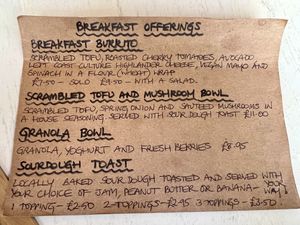 BREAKFAST OFFERINGS
BREAKFAST BURRITO
SCRAMBLED TOFU, ROASTED CHERRY TOMATOES, AVOCADO
LEFT COAST CULTURE HIGHLANDER CHEESE, VEGAN MAYO AND
SPINACH IN A FLOUR (WHEAT) WRAP
£7.50 - SOLO £9.50 - WITH A SALAD.
SCRAMBLED TOFU AND MUSHROOM BOWL
SCRAMBLED TOFU, SPRING ONION AND SAUTEED MUSHROOMS IN
A HOUSE SEASONING. SERVED WITH SOUR DOUGH TOAST £11.00
GRANOLA BOWL
GRANOLA, YOGHURT AND FRESH BERRIES £8.95
SOURDOUGH TOAST
LOCALLY BAKED SOUR DOUGH TOASTED AND SERVED WITH
YOUR CHOICE OF JAM, PEANUT BUTTER OR BANANA -
1 TOPPING - £2.50 2 TOPPINGS - £2.95 3 TOPPINGS - £3.50